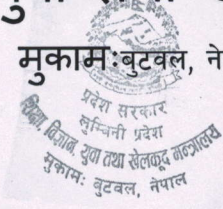 मुकामःबुटवल, ने
प्रदेश सरकार
लुम्बिनी प्रदेश
शिक्षा, विज्ञान, युवा तथा खेलकूद मन्त्रालय
मुकामः बुटवल, नेपाल